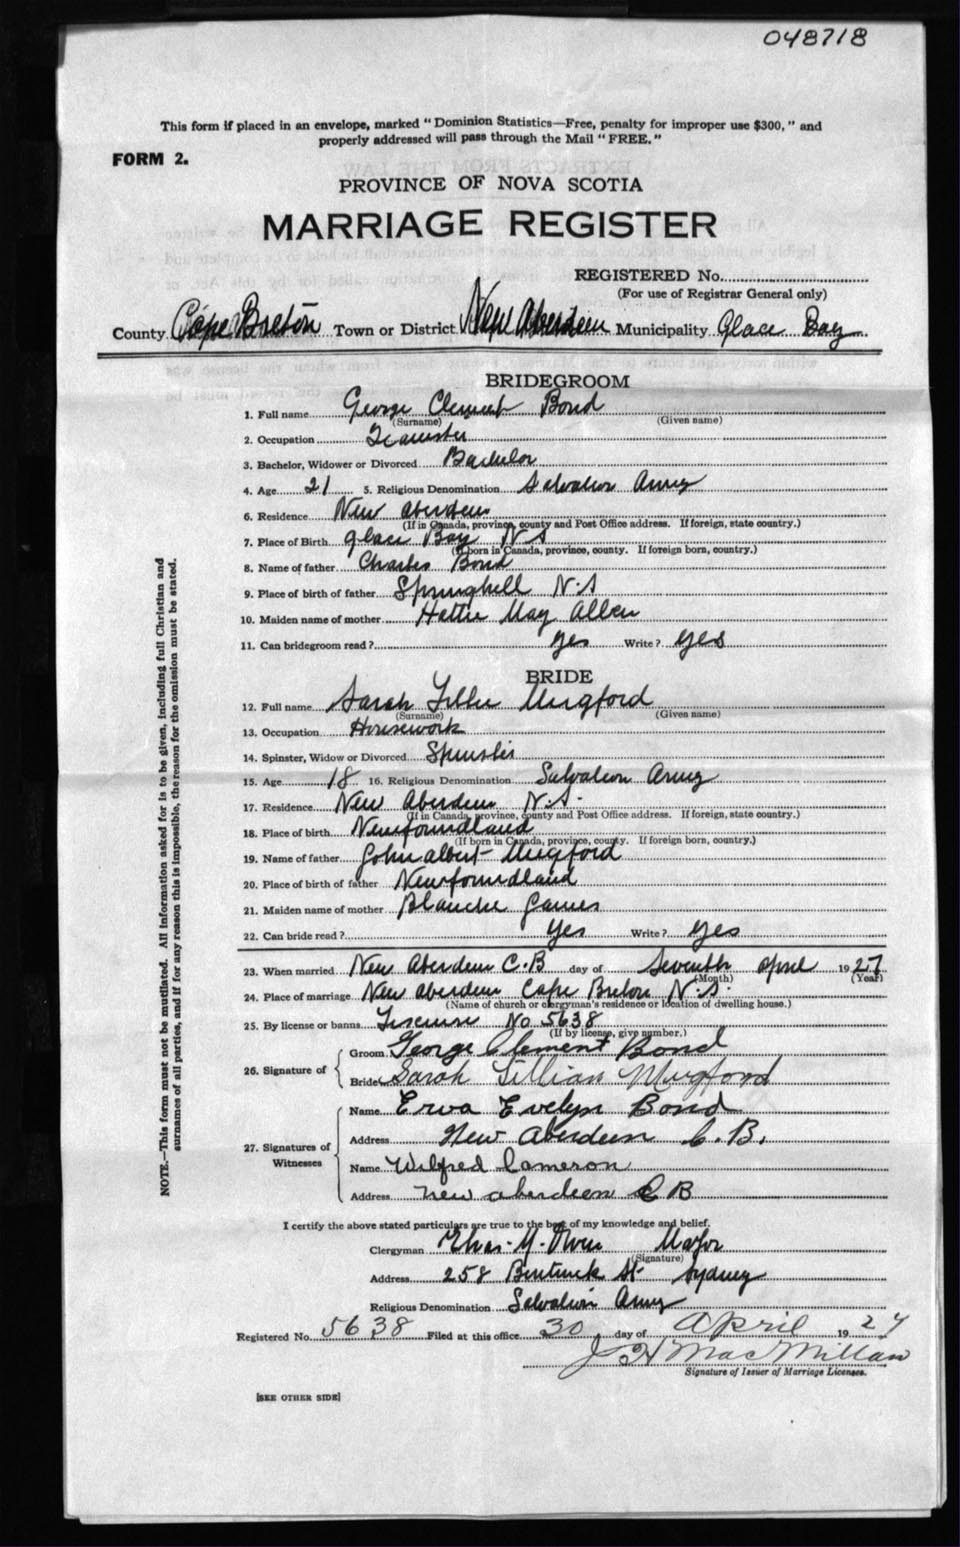 048718
This form if placed in an envelope, marked "Dominion Statistics—Free, penalty for improper use $300," and
properly addressed will pass through the Mail "FREE."
FORM 2.
PROVINCE OF NOVA SCOTIA
MARRIAGE REGISTER
REGISTERED No.
(For use of Registrar General only)
County Cape Breton Town or District New Aberdeen Municipality Glace Bay
BRIDEGROOM
1. Full name George Clement Bond
(Surname) (Given name)
2. Occupation Teamster
3. Bachelor, Widower or Divorced Bachelor
4. Age 21 5. Religious Denomination Salvation Army
6. Residence New Aberdeen
(If in Canada, province, county and Post Office address. If foreign, state country.)
7. Place of Birth Glace Bay N S
(If born in Canada, province, county. If foreign born, country.)
8. Name of father Charles Bond
9. Place of birth of father Springhill N.S
10. Maiden name of mother Hattie May Allen
11. Can bridegroom read? Yes Write? Yes
BRIDE
12. Full name Sarah Mugford
(Surname) (Given name)
13. Occupation Housework
14. Spinster, Widow or Divorced Spinster
15. Age 18 16. Religious Denomination Salvation Army
17. Residence New Aberdeen N.S.
(If in Canada, province, county and Post Office address. If foreign, state country.)
18. Place of birth Newfoundland
(If born in Canada, province, county. If foreign born, country.)
19. Name of father John Albert Mugford
20. Place of birth of father Newfoundland
21. Maiden name of mother Blanche
22. Can bride read? Yes Write? Yes
23. When married New Aberdeen C.B day of Seventh April 1927
(Month) (Year)
24. Place of marriage New Aberdeen Cape Breton N.S.
(Name of church or clergyman's residence or location of dwelling house.)
25. By license or banns No 5638
(If by license, give number.)
26. Signature of
Groom George Clement Bond
Bride Sarah Lillian Mugford
27. Signatures of Witnesses
Name Erva Evelyn Bond
Address New Aberdeen C.B.
Name Wilfred Cameron
Address New Aberdeen C B
I certify the above stated particulars are true to the best of my knowledge and belief.
Clergyman Chas. Owen Major
(Signature)
Address 258 Bentinck St. Sydney
Religious Denomination Salvation Army
Registered No. 5638 Filed at this office 30 day of April 1927
J H MacMillan
Signature of Issuer of Marriage Licenses.
[SEE OTHER SIDE]
NOTE.—This form must not be mutilated. All information asked for is to be given, including full Christian and
surnames of all parties, and if for any reason this is impossible, the reason for the omission must be stated.